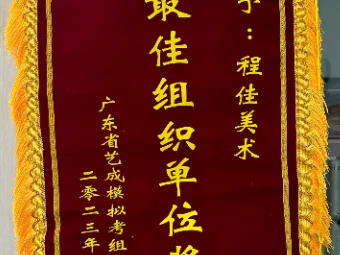 予：程佳美术
最佳组织单位奖
广东省艺成模拟考组
二零二三年